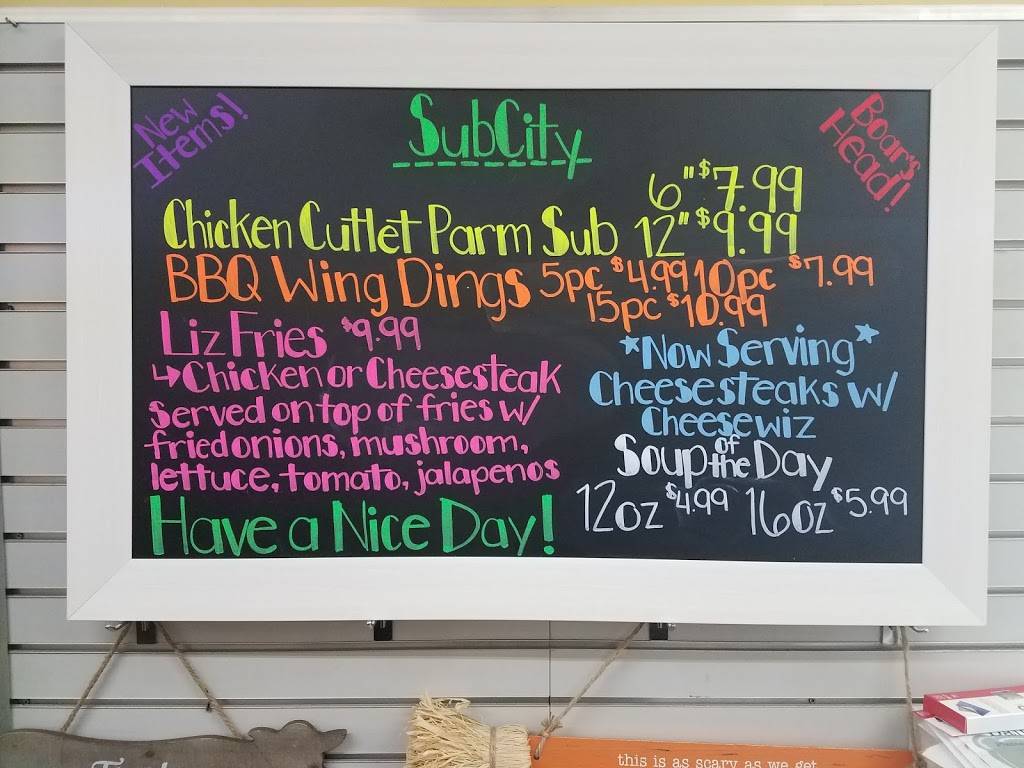 New Items!
SubCity
Boars Head!
Chicken Cutlet Parm Sub 6" $7.99
12" $9.99
BBQ Wing Dings 5pc $4.99 10pc $7.99
15pc $10.99
Liz Fries $9.99
↳Chicken or Cheesesteak
Served on top of fries w/
fried onions, mushroom,
lettuce, tomato, jalapenos
*Now Serving*
Cheesesteaks w/
Cheesewiz
Soup of the Day
12oz $4.99 16oz $5.99
Have a Nice Day!
this is as scary as we get